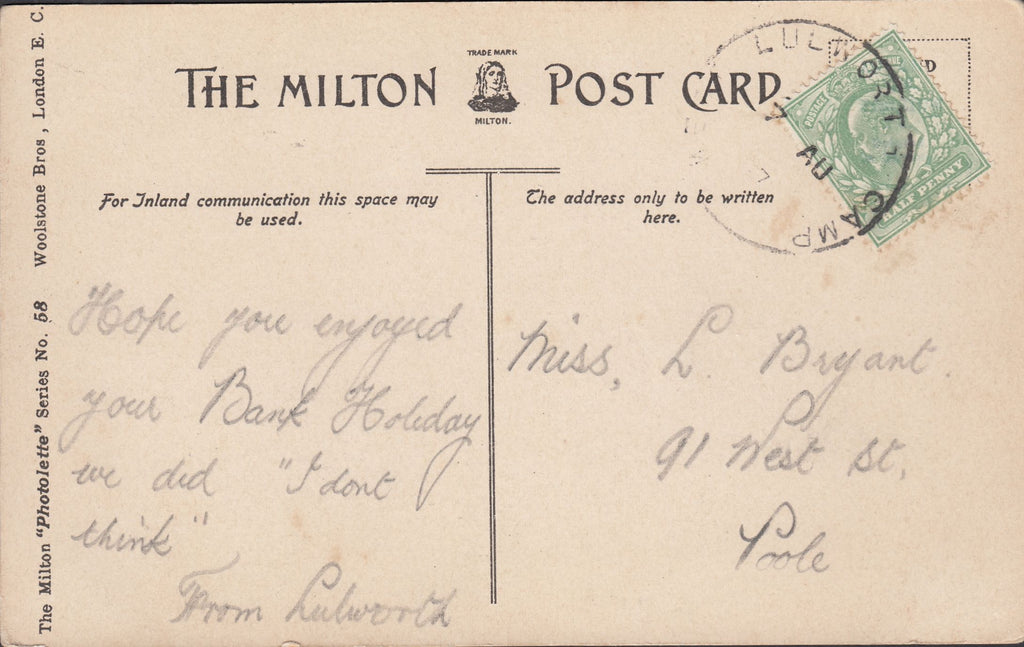 The Milton "Photolette" Series No. 58 Woolstone Bros, London E. C.
TRADE MARK
THE MILTON POST CARD
MILTON.
For Inland communication this space may
be used.
The address only to be written
here.
LULWORTH CAMP
AU
POSTAGE
HALF PENNY
Hope you enjoyed
your Bank Holiday
we did "I dont
think"
From Lulworth
Miss, L. Bryant.
91 West St,
Poole